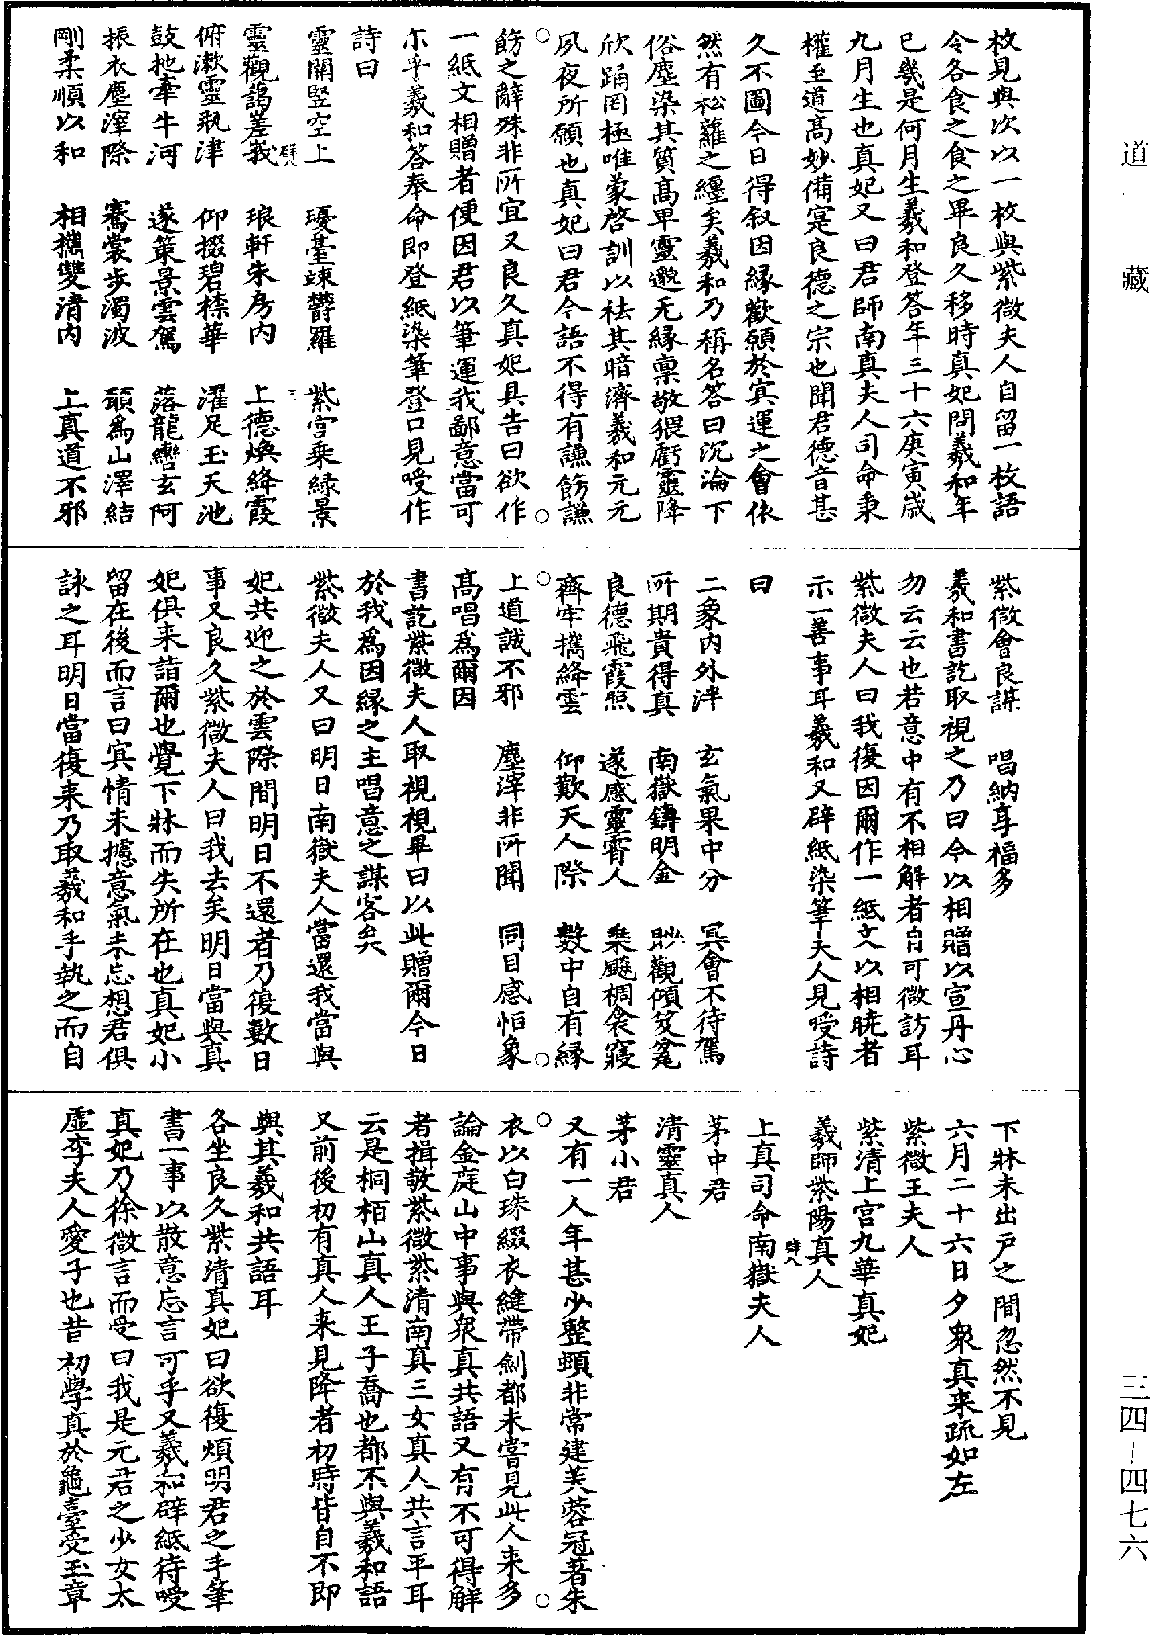 道藏
三四-四七六
枚見與次以一枚與紫微夫人自留一枚語
令各食之食之畢良久移時真妃問羲和年
已幾是何月生羲和登答年三十六庚寅歲
九月生也真妃又曰君師南真夫人司命秉
權至道高妙備寔良德之宗也聞君德音甚
久不圖今日得叙因緣歡願於冥運之會依
然有松蘿之纏矣羲和乃稱名答曰沉淪下
俗塵染其質高卑靈邈无緣稟敬猥虧靈降
欣踊罔極唯蒙啓訓以祛其暗濟羲和元元
夙夜所願也真妃曰君今語不得有謙飾謙
飾之辭殊非所宜又良久真妃具告曰欲作
一紙文相贈者便因君以筆運我鄙意當可
尓乎羲和答奉命即登紙染筆登口見受作
詩曰
靈闕竪空上 瓊臺竦鬱羅 紫宮乘綠景
靈觀藹差羲 琅軒朱房内 上德煥絳霞
俯漱靈瓶津 仰掇碧㮈華 濯足玉天池
鼓抴牽牛河 遂策景雲駕 落龍轡玄阿
振衣塵滓際 褰裳步濁波 願為山澤結
剛柔順以和 相攜雙清内 上真道不邪
紫微會良謀 唱納享福多
羲和書訖取視之乃曰今以相贈以宣丹心
勿云云也若意中有不相解者自可微訪耳
紫微夫人曰我復因爾作一紙文以相曉者
示一善事耳羲和又辟紙染筆夫人見受詩
曰
二象内外泮 玄氣果中分 冥會不待駕
所期貴得真 南嶽鑄明金 眇觀傾笈㝹
良德飛霞照 遂感靈霄人 乘飈椆衾寢
齊牢攜絳雲 仰歎天人際 數中自有緣
上道誠不邪 塵滓非所聞 同目感怕象
高唱為爾因
書訖紫微夫人取視視畢曰以此贈爾今日
於我為因緣之主唱意之謀客矣
紫微夫人又曰明日南嶽夫人當還我當與
妃共迎之於雲際間明日不還者乃復數日
事又良久紫微夫人曰我去矣明日當與真
妃俱来詣爾也覺下牀而失所在也真妃小
留在後而言曰冥情未攄意氣未忘想君俱
詠之耳明日當復来乃取羲和手執之而自
下牀未出戶之間忽然不見
六月二十六日夕衆真来疏如左
紫微王夫人
紫清上宮九華真妃
羲師紫陽真人
上真司命南嶽夫人
茅中君
清靈真人
茅小君
又有一人年甚少整頓非常建芙蓉冠著朱
衣以白珠綴衣縫帶劍都未嘗見此人来多
論金庭山中事與衆真共語又有不可得解
者揖敬紫微紫清南真三女真人共言平耳
云是桐栢山真人王子喬也都不與羲和語
又前後初有真人来見降者初時皆自不即
與其羲和共語耳
各坐良久紫清真妃曰欲復煩明君之手筆
書一事以散意忘言可乎又羲和辟紙待受
真妃乃徐微言而受曰我是元君之少女太
虛李夫人愛子也昔初學真於龜臺受玉章